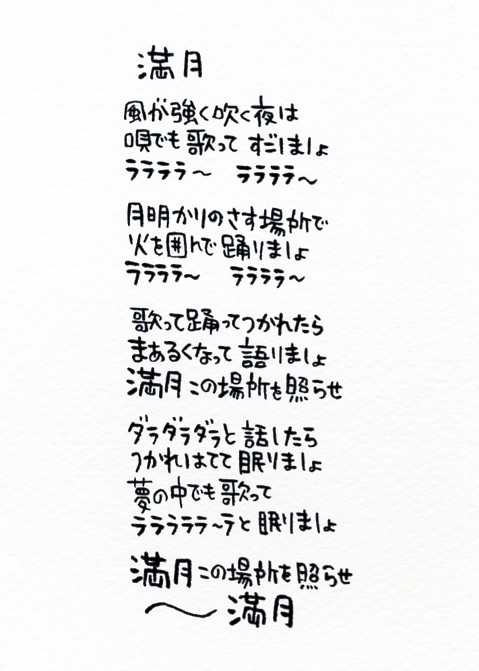 満月
風が強く吹く夜は
唄でも歌って すごしましょ
ララララ〜 ララララ〜
月明かりのさす場所で
火を囲んで踊りましょ
ララララ〜 ララララ〜
歌って踊ってつかれたら
まあるくなって語りましょ
満月この場所を照らせ
ダラダラダラと話したら
つかれはてて眠りましょ
夢の中でも歌って
ラララララ〜ラと眠りましょ
満月この場所を照らせ
〜満月